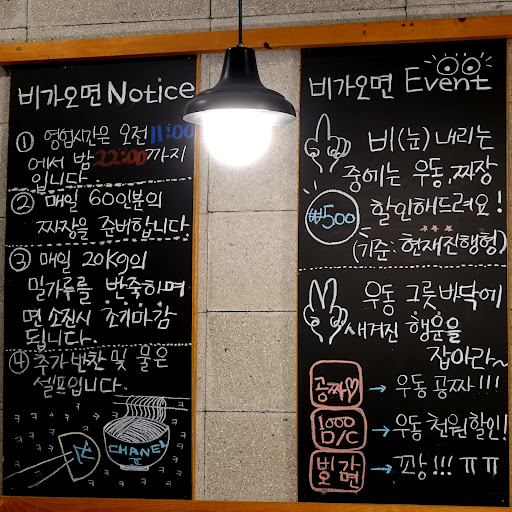 비가오면 Notice
① 영업시간은 오전 11:00
에서 밤 22:00까지
입니다.
② 매일 60인분의
짜장을 준비합니다.
③ 매일 20kg의
밀가루를 반죽하며
면 소진시 조기마감
됩니다.
④ 추가 반찬 및 물은
셀프입니다.
ㅋ ㅋ ㅋ ㅋ
CHANEL
비가오면 Event
비(눈) 내리는
중에는 우동, 짜장
₩500 할인해드려요!
(기준: 현재진행형)
우동 그릇 바닥에
새겨진 행운을
잡아라~
공짜♡ → 우동 공짜!!!
1000 D/C → 우동 천원할인!
빙고면 → 꽝!!! ㅠㅠ